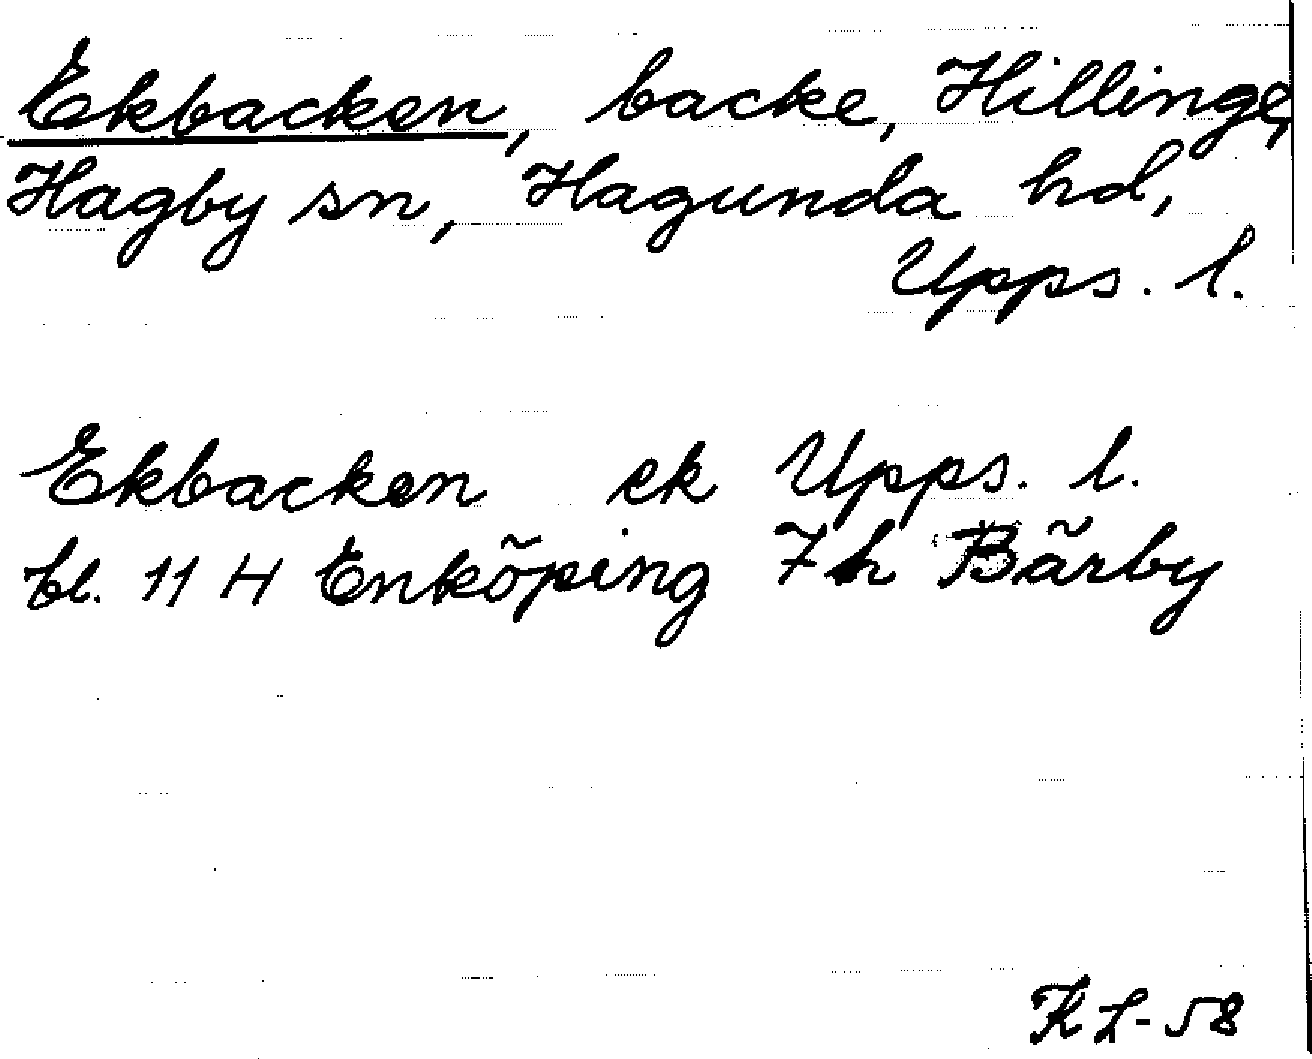 Ekbacken, backe, Hillinge,
Hagby sn, Hagunda hd,
Upps. l.
Ekbacken ek Upps. l.
bl. 11 H Enköping 7 h Bärby
KL-58